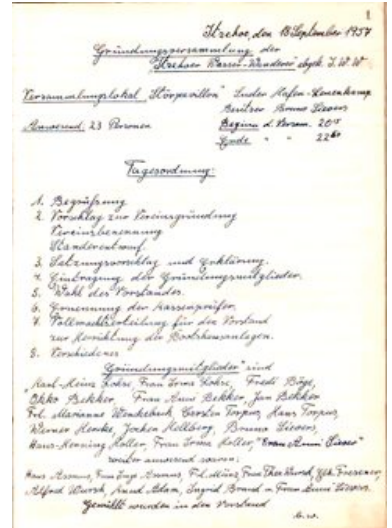 1
Itzehoe, den 18 September 1957
Gründungsversammlung der
"Itzehoer Wasser-Wanderer" abgk. I.W.W
Versammlungslokal "Störpavillon" Suder Hafen-
Besitzer Bruno Sievers
Anwesend 23 Personen Beginn d. Versam. 20
Ende " " 22
Tagesordnung:
1. Begrüßung
2. Vorschlag zur Vereinsgründung
Vereinsbenennung
Standerentwurf.
3. Satzungsvorschlag und Erklärung.
4. Eintragung der Gründungsmitglieder.
5. Wahl des Vorstandes.
6. Ernennung der Kassenprüfer.
7. Vollmachtserteilung für den Vorstand
zur Herrichtung der Bootsheimanlagen.
8. Verschiedenes
"Gründungsmitglieder" sind
Karl-Heinz Lohse, Frau Irma Lohse, Fredi Böge,
Okko Bekker, Frau Anni Bekker, Jan Bekker
Frl. Marianne Carsten Torpus, Hans Torpus,
Werner Jochen Hellberg, Bruno Sievers,
Hans-Henning Holler, Frau Irma Holler, "Frau Anni Sievers"
weiter anwesend waren:
Hans Assmus, Frau Inge Assmus, Frl. Münz, Frau Thea Wursch,
Alfred Wursch, Adam, Ingrid Brand u. Frau Anni Sievers.
Gewählt wurden in den Vorstand
b.w.